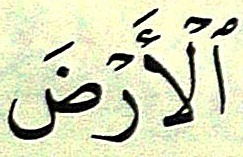 ٱلْأَرْضَ